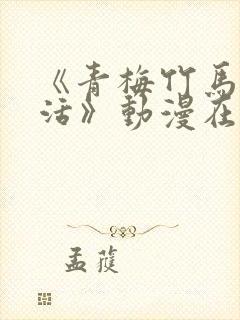 《青梅竹馬
活》動漫在
孟蓰